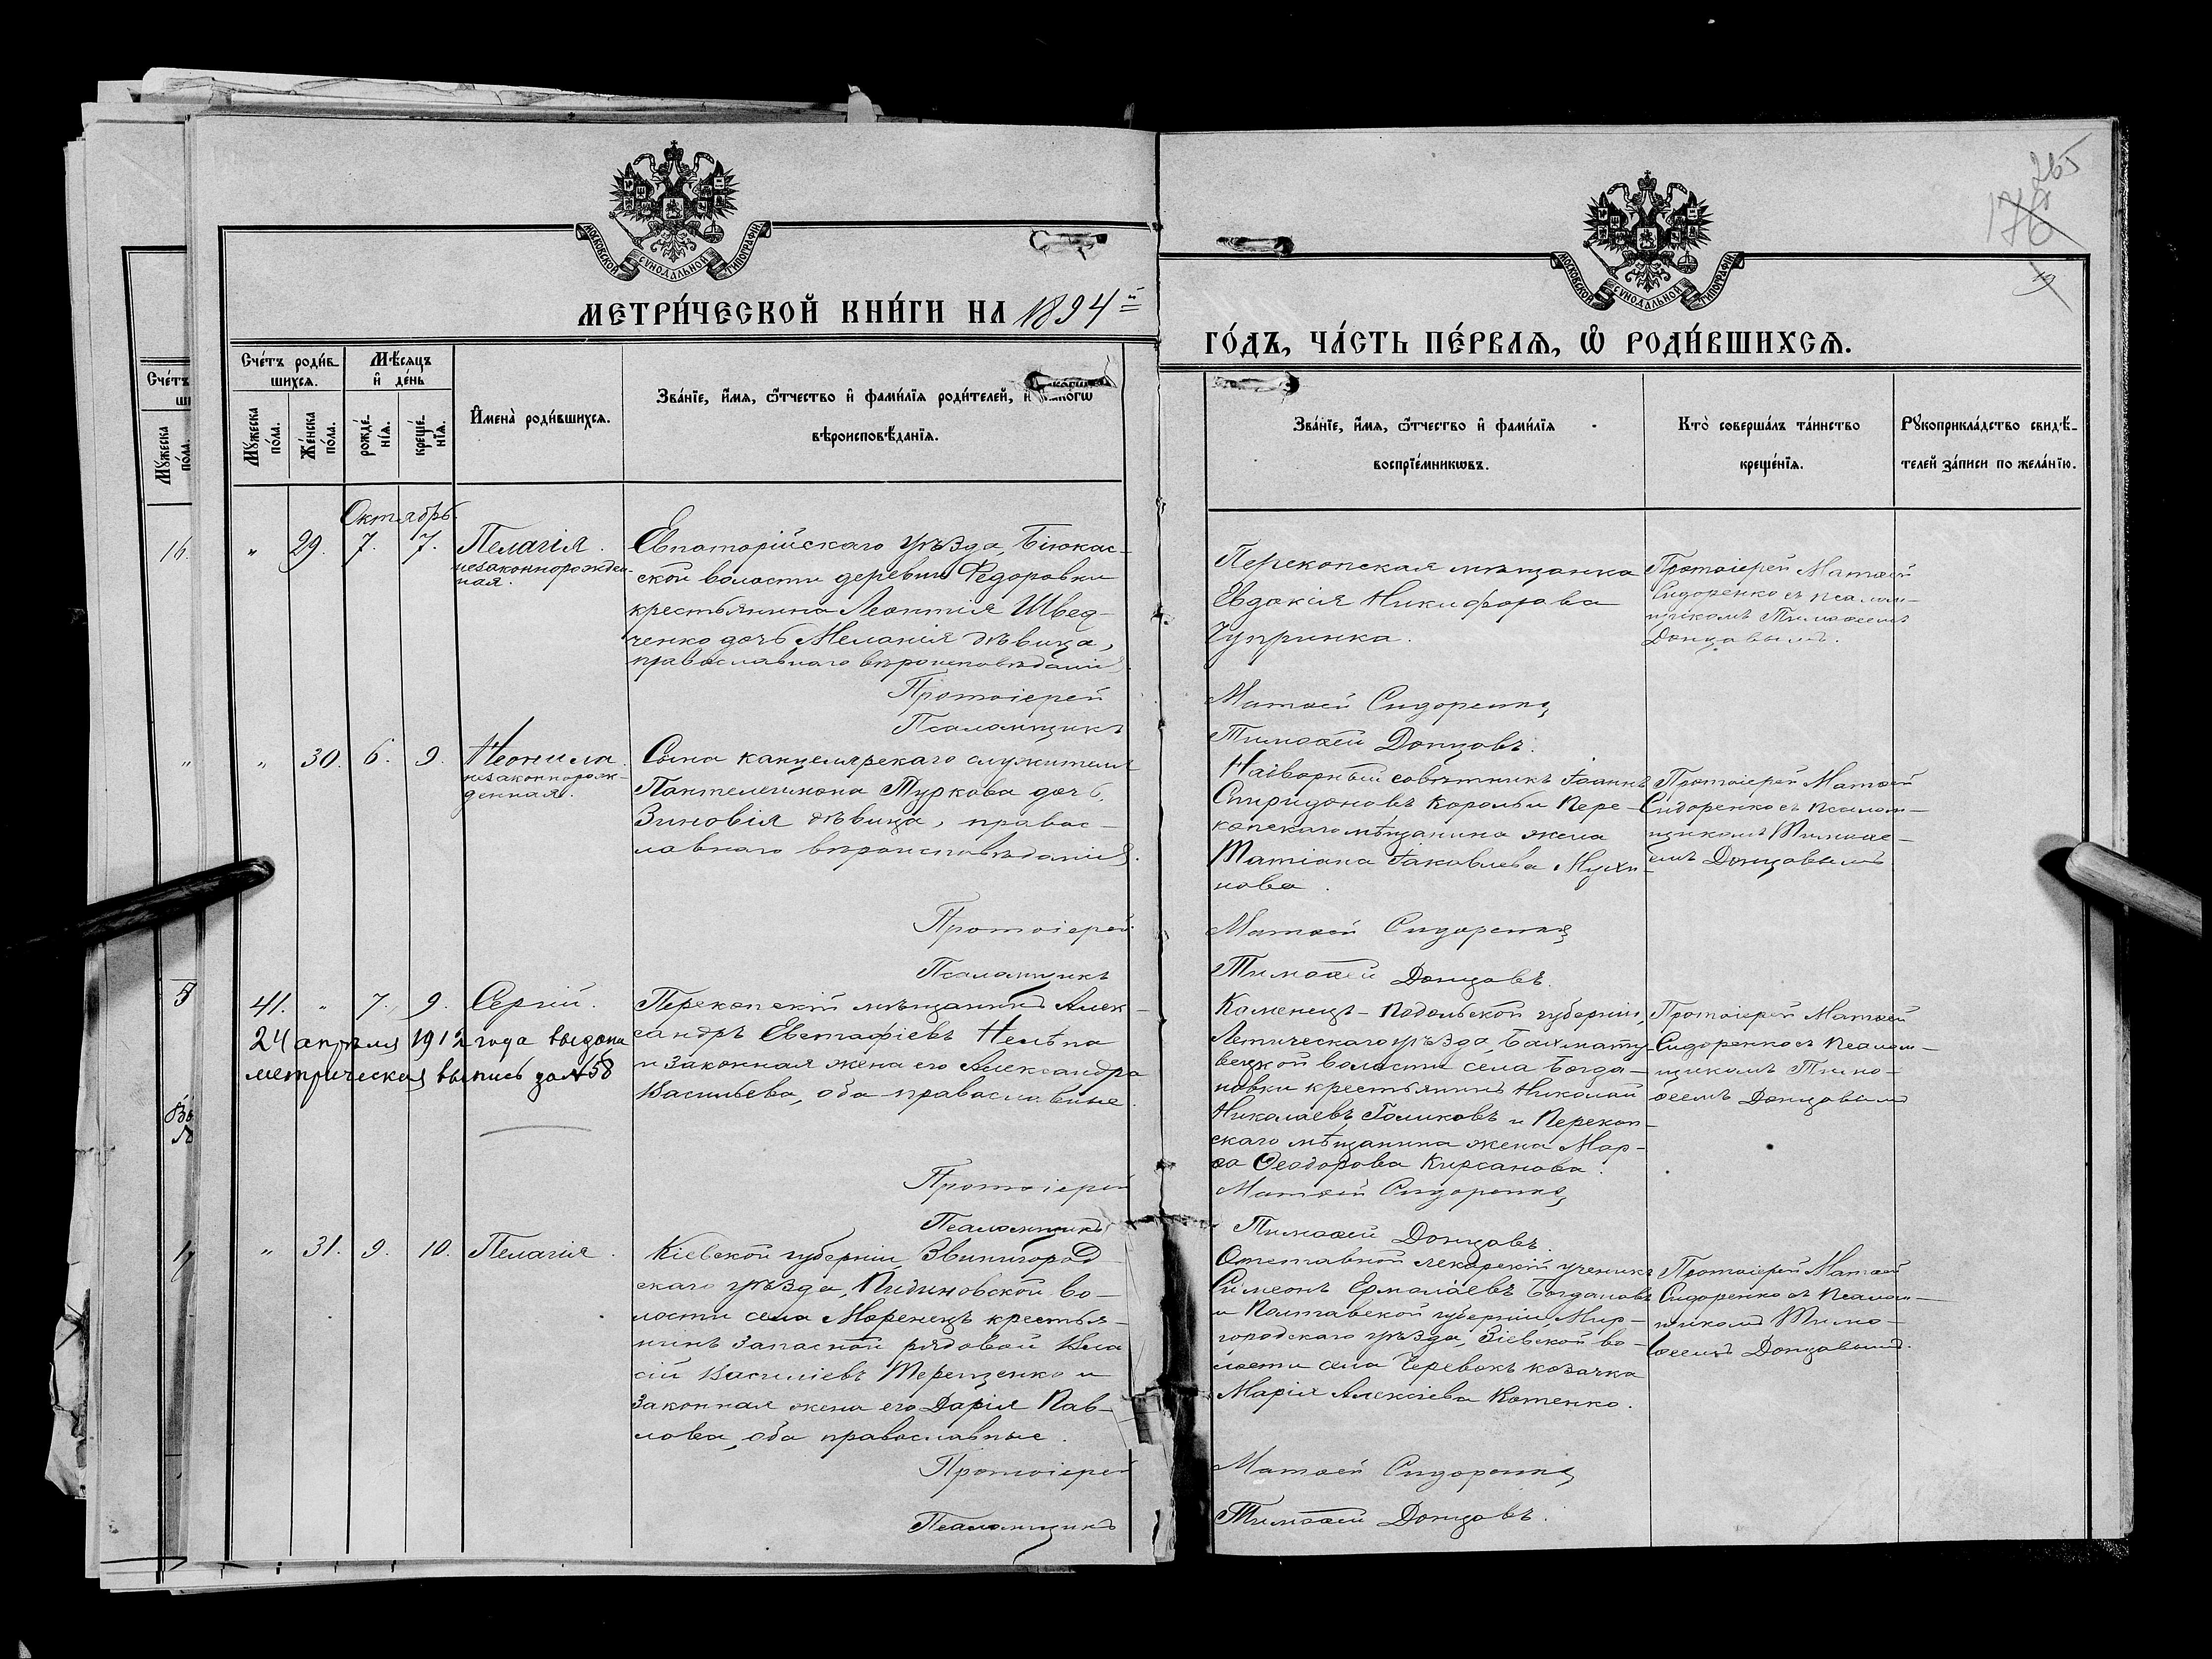 265
176
МОСКОВСКОЙ СѴНОДАЛЬНОЙ ТИПОГРАФІИ
МОСКОВСКОЙ СѴНОДАЛЬНОЙ ТИПОГРАФІИ
МЕТРИ́ЧЕСКОЙ КНИ́ГИ НА 1894й
ГО́ДЪ, ЧА́СТЬ ПЕ́РВАѦ, Ѡ҆ РОДИ́ВШИХСѦ.
Счетъ роди́в-
шихсѧ.
Мꙋжеска по́ла.
Же́нска по́ла.
Мѣ́сѧцъ
и҆ де́нь
рожде́-
нїѧ.
креще-
нїѧ.
И҆мена̀ роди́вшихсѧ.
Зва́нїе, и҆́мѧ, ѻ҆́тчество и҆ фами́лїѧ роди́телей, и҆
вѣроисповѣ́данїѧ.
Зва́нїе, и҆́мѧ, ѻ҆́тчество и҆ фами́лїѧ
воспрїе́мникѡвъ.
Кто̀ соверша́лъ та́инство
креще́нїѧ.
Рꙋкоприкла́дство свидѣ́-
телей за́писи по жела́нїю.
Октябрь
" 29. 7. 7. Пелагія.
незаконнорожден-
ная.
Евпаторійскаго уѣзда, Біюкас-
ской волости деревни Федоровки
крестьянина Леонтія Швед-
ченко дочь Меланія дѣвица,
православнаго вѣроисповѣданія.
Протоіерей
Псаломщикъ
Перекопская мѣщанка
Евдокія Никифорова
Чупринка.
Матѳей Сидоренко
Тимоѳей Донцовъ.
Протоіерей Матѳей
Сидоренко съ псалом-
щикомъ Тимоѳеемъ
Донцовымъ.
" 30. 6. 9. Неонила.
незаконнорож-
денная.
Сына канцелярскаго служителя
Пантелеимона Туркова дочь,
Зиновія дѣвица, правос-
лавнаго вѣроисповѣданія.
Протоіерей
Псаломщикъ
Надворный совѣтникъ Іоаннъ
Спиридоновъ Король и Пере-
копскаго мѣщанина жена
Татіана Іаковлева Мухи-
нова.
Матѳей Сидоренко
Тимоѳей Донцовъ.
Протоіерей Матѳей
Сидоренко съ псалом-
щикомъ Тимоѳе-
емъ Донцовымъ
41. " 7. 9. Сергій.
24 апрѣля 1912 года выдана
метрическая выпись за №58
Перекопскій мѣщанинъ Алек-
сандръ Евстафіевъ Нелѣпа
и законная жена его Александра
Васильева, оба православные.
Протоіерей
Псаломщикъ
Каменецъ-Подольской губерніи,
Летическаго уѣзда, Бахмату-
вецкой волости села Богда-
новки крестьянинъ Николай
Николаевъ Голиковъ и Перекоп-
скаго мѣщанина жена Мар-
ѳа Ѳеодорова Кирсанова.
Матѳей Сидоренко
Тимоѳей Донцовъ.
Протоіерей Матѳей
Сидоренко съ псалом-
щикомъ Тимо-
ѳеемъ Донцовымъ
" 31. 9. 10. Пелагія.
Кіевской губерніи, Звинигород-
скаго уѣзда, Пидиновской во-
лости села Моренецъ крестья-
нинъ запасной рядовой Вла-
сій Василіевъ Терещенко и
законная жена его Дарія Пав-
лова, оба православные.
Протоіерей
Псаломщикъ
Отставной лекарскій ученикъ
Сѵмеонъ Ермолаевъ Богдановъ
и Полтавской губерніи, Мир-
городскаго уѣзда, Зіевской во-
лости села Черевокъ козачка
Марія Алексіева Котенко.
Матѳей Сидоренко
Тимоѳей Донцовъ.
Протоіерей Матѳей
Сидоренко съ псалом-
щикомъ Тимо-
ѳеемъ Донцовымъ.